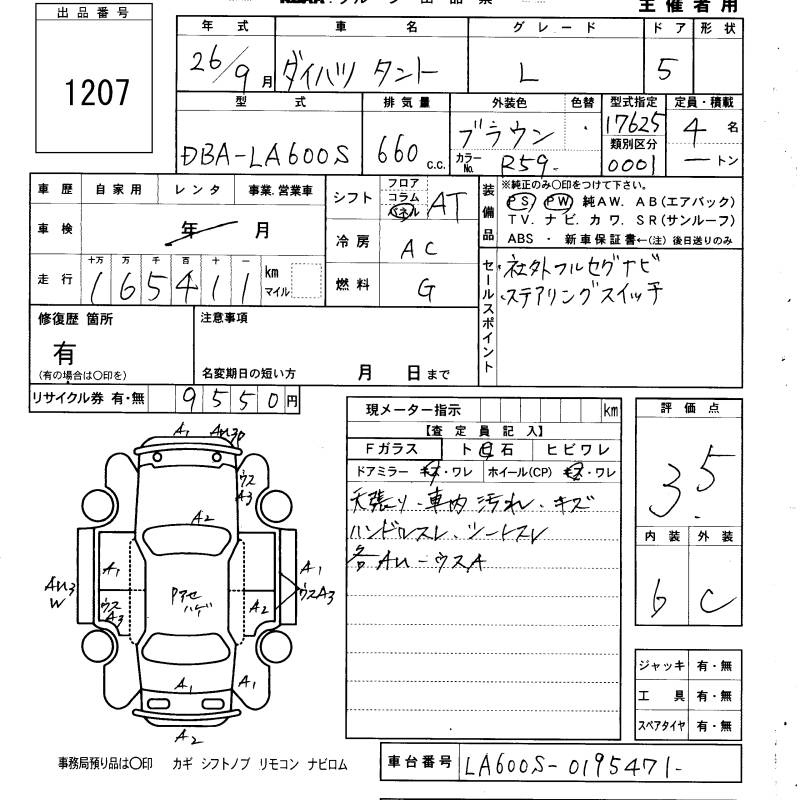 主催者用
出品番号
1207
年式 車名 グレード ドア 形状
26/9月 ダイハツ タント L 5
型式 排気量 外装色 色替 型式指定 定員・積載
DBA-LA600S 660 c.c. ブラウン ・ 17625 4名
カラーNo. R59 類別区分 0001 ー トン
車歴 自家用 レンタ 事業.営業車
車検 年 月
走行 十万 万 千 百 十 一
165411 km マイル
シフト フロア コラム パネル AT
冷房 AC
燃料 G
装備品 ※純正のみ〇印をつけて下さい。
PS PW 純AW. AB(エアバック)
TV. ナビ. カワ. SR(サンルーフ)
ABS ・ 新車保証書←(注) 後日送りのみ
セールスポイント
・社外フルセグナビ
・ステアリングスイッチ
修復歴 箇所
有
(有の場合は〇印を)
注意事項
名変期日の短い方 月 日まで
リサイクル券 有・無 9550円
現メーター指示 km
【査定員記入】
Fガラス ト石 ヒビワレ
ドアミラー キズ・ワレ ホイール(CP) キズ・ワレ
天張り・車内 汚れ・キズ
ハンドルスレ・シートスレ
各AU-ウスA
評価点
3.5
内装 外装
6 C
ジャッキ 有・無
工具 有・無
スペアタイヤ 有・無
A1
ウス A3
A2
A1
A1
AU3 W
ウス A3
Pアセ ハゲ
A2
ウスA3
A1
A1
A2
事務局預り品は〇印 カギ シフトノブ リモコン ナビロム
車台番号 LA600S-0195471-